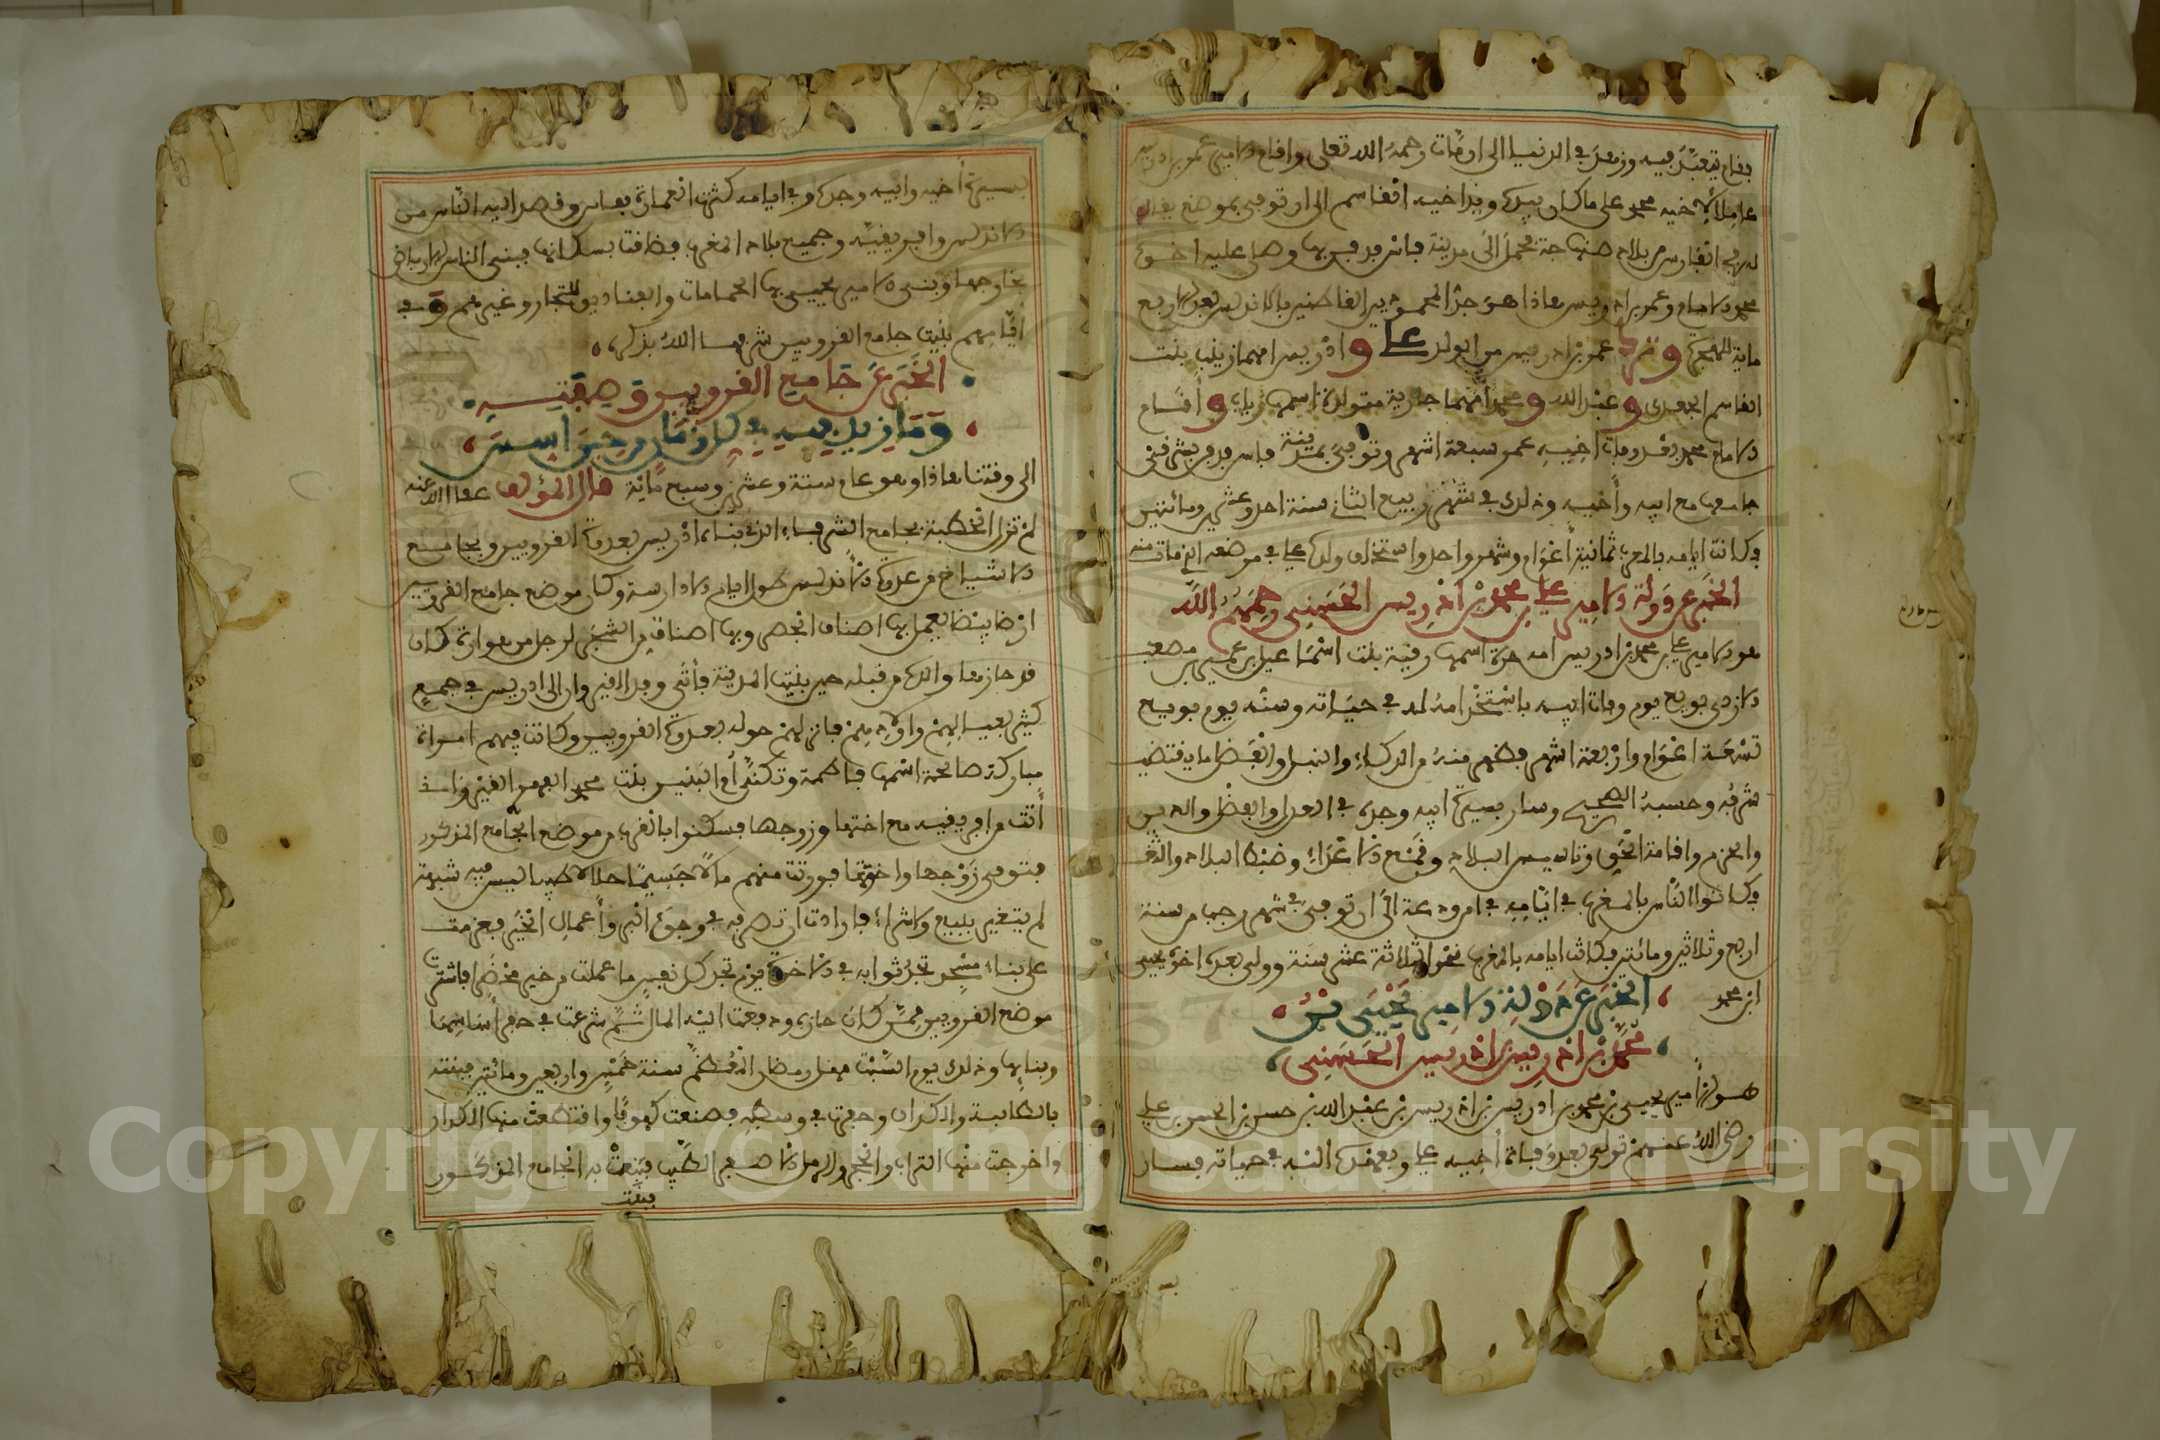 فقام يتعبد فيه وزهد في الدنيا الى ان مات رحمه الله تعلى واقام الامير عمر بن ادريس
عاملا لاخيه محمد على ما كان بيده وبيد اخيه القاسم الى ان توفي بموضع يقال
له فج الفارس من بلاد صنهاجة فحمل الى مدينة فاس فدفن بها وصلى عليه اخوه
محمد الامام وعمر بن ادريس هاذا هو جد الحموديين القائمين بالاندلس بعد الاربع
ماية للهجرة وترك عمر بن ادريس من الولد علي وادريس امهما زينب بنت
القاسم الجعدي وعبد الله ومحمد امهما جارية مولدة اسمها رباب واقام
الامام محمد بعد وفات اخيه عمر سبعة اشهر وتوفي بمدينة فاس فدفن بشرقي
جامعها مع ابيه واخيه وذلك في شهر ربيع الثاني سنة احد وعشرين ومائتين
فكانت ايامه بالمغرب ثمانية اعوام وشهر واحد واستخلف ولده علي في مرضه الذي مات منه
الخبر عن دولة الامير علي بن محمد بن ادريس الحسني رحمهم الله
هو الامير علي بن محمد بن ادريس امه حرة اسمها رقية بنت اسماعيل بن عمير بن مصعب
الازدي بويع يوم وفات ابيه باستخلافه له في حياته وسنه يوم بويع
تسعة اعوام واربعة اشهر فظهر منه من الذكاء والنبل والفضل ما يقتضيه
شرفه وحسبه الصميم وسار بسيرة ابيه وجده في العدل والفضل والدين
والحزم واقامة الحق وتاسيس البلاد وقمع الاعداء وضبط البلاد والثغر
فكانوا الناس بالمغرب في ايامه في امن ودعة الى ان توفي في شهر رجب من سنة
اربع وثلاثين ومائتين فكانت ايامه بالمغرب نحو الثلاثة عشر سنة وولي بعده اخوه يحيى
ابن محمد
الخبر عن دولة الامير يحيى بن
محمد بن ادريس بن ادريس الحسني
هو الامير يحيى بن محمد بن ادريس بن ادريس بن عبد الله بن حسن بن الحسن بن علي
رضي الله عنهم تولى بعد وفاة اخيه علي وبعهده اليه في حياته فسار
بسيرة اخيه وابيه وجده وفي ايامه كثرت العمارة بفاس وقصد اليه الناس من
الاندلس وافريقية وجميع بلاد المغرب فضاقت بسكانها فبنى الناس الارباض
بخارجها وبنى الامير يحيى بها الحمامات والفنادق للتجار وغيرهم وفي
ايامهم بنيت جامع القرويين شرفها الله بذكره
الخبر عن جامع القرويين وصفته
وما زيد فيه في كل زمان من حين اسس
الى وقتنا هاذا وهو عام ستة وعشرين وسبع ماية قال المؤلف عفا الله عنه
لم تزل الخطبة بجامع الشرفاء الذي بناه ادريس بعدوة القرويين وبجامع
الاشياخ من عدوة الاندلس طول ايام الادارسة وكان موضع جامع القرويين
ارضا بيضا يعمل بها اصناف الجص وبها اصناف من الشجر لرجل من هوارة كان
قد حازها والده من قبله حين بنيت المدينة فاتى وفد القيروان الى ادريس في جمع
كثير بعيالهم واولادهم فانزلهم حوله بعدوة القرويين وكانت فيهم امراة
مباركة صالحة اسمها فاطمة وتكنى ام البنين بنت محمد الفهري القيرواني
أتت من افريقية مع اختها وزوجها فسكنوا بالقرب من موضع الجامع المذكور
فتوفي زوجها واختها فورثت منهم مالا جسيما حلالا طيبا ليس فيه شبهة
لم يتغير ببيع ولا شراء فارادت ان تصرفه في وجوه البر واعمال الخير فعزمت
على بناء مسجد تجد ثوابه في الاخرة يوم تجد كل نفس ما عملت من خير محضرا فاشترت
موضع القرويين ممن كان حازه ودفعت اليه المال ثم شرعت في حفر اساسها
وبنائها وذلك يوم السبت مهل رمضان المعظم سنة خمس واربعين ومائتين فبنته
بالطابية والكدان وحفرت في وسطه فصنعت كهوفا واقتطعت منها الكدان
واخرجت منها التراب والحجر والرمل الاصفر الطيب فبنت به الجامع المذكور
فبنت
Copyright © King Saud University
1957